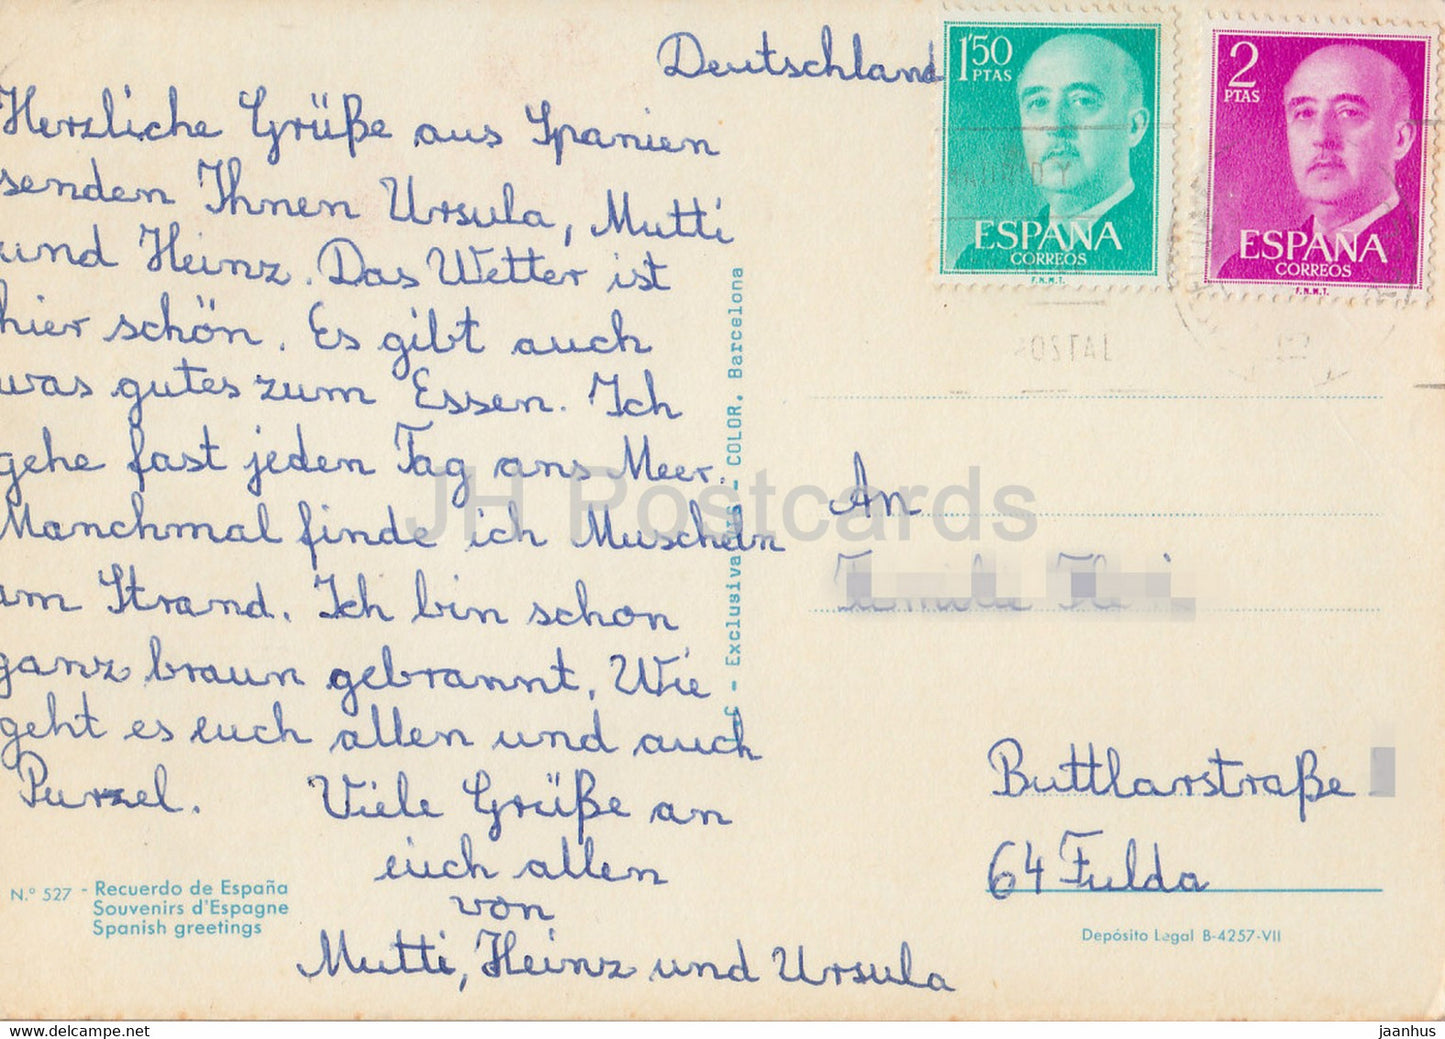 Deutschland
Herzliche Grüße aus Spanien
senden Ihnen Ursula, Mutti
und Heinz. Das Wetter ist
hier schön. Es gibt auch
was gutes zum Essen. Ich
gehe fast jeden Tag ans Meer.
Manchmal finde ich Muscheln
am Strand. Ich bin schon
ganz braun gebrannt. Wie
geht es euch allen und auch
Purzel. Viele Grüße an
euch allen
von
Mutti, Heinz und Ursula
N.° 527 - Recuerdo de España
Souvenirs d'Espagne
Spanish greetings
Exclusivas - COLOR, Barcelona
1'50
PTAS
ESPAÑA
CORREOS
F.N.M.T.
2
PTAS
ESPAÑA
CORREOS
F.N.M.T.
An
Familie
Buttlarstraße
64 Fulda
Depósito Legal B-4257-VII
JH Postcards
www.delcampe.net
jaanhus